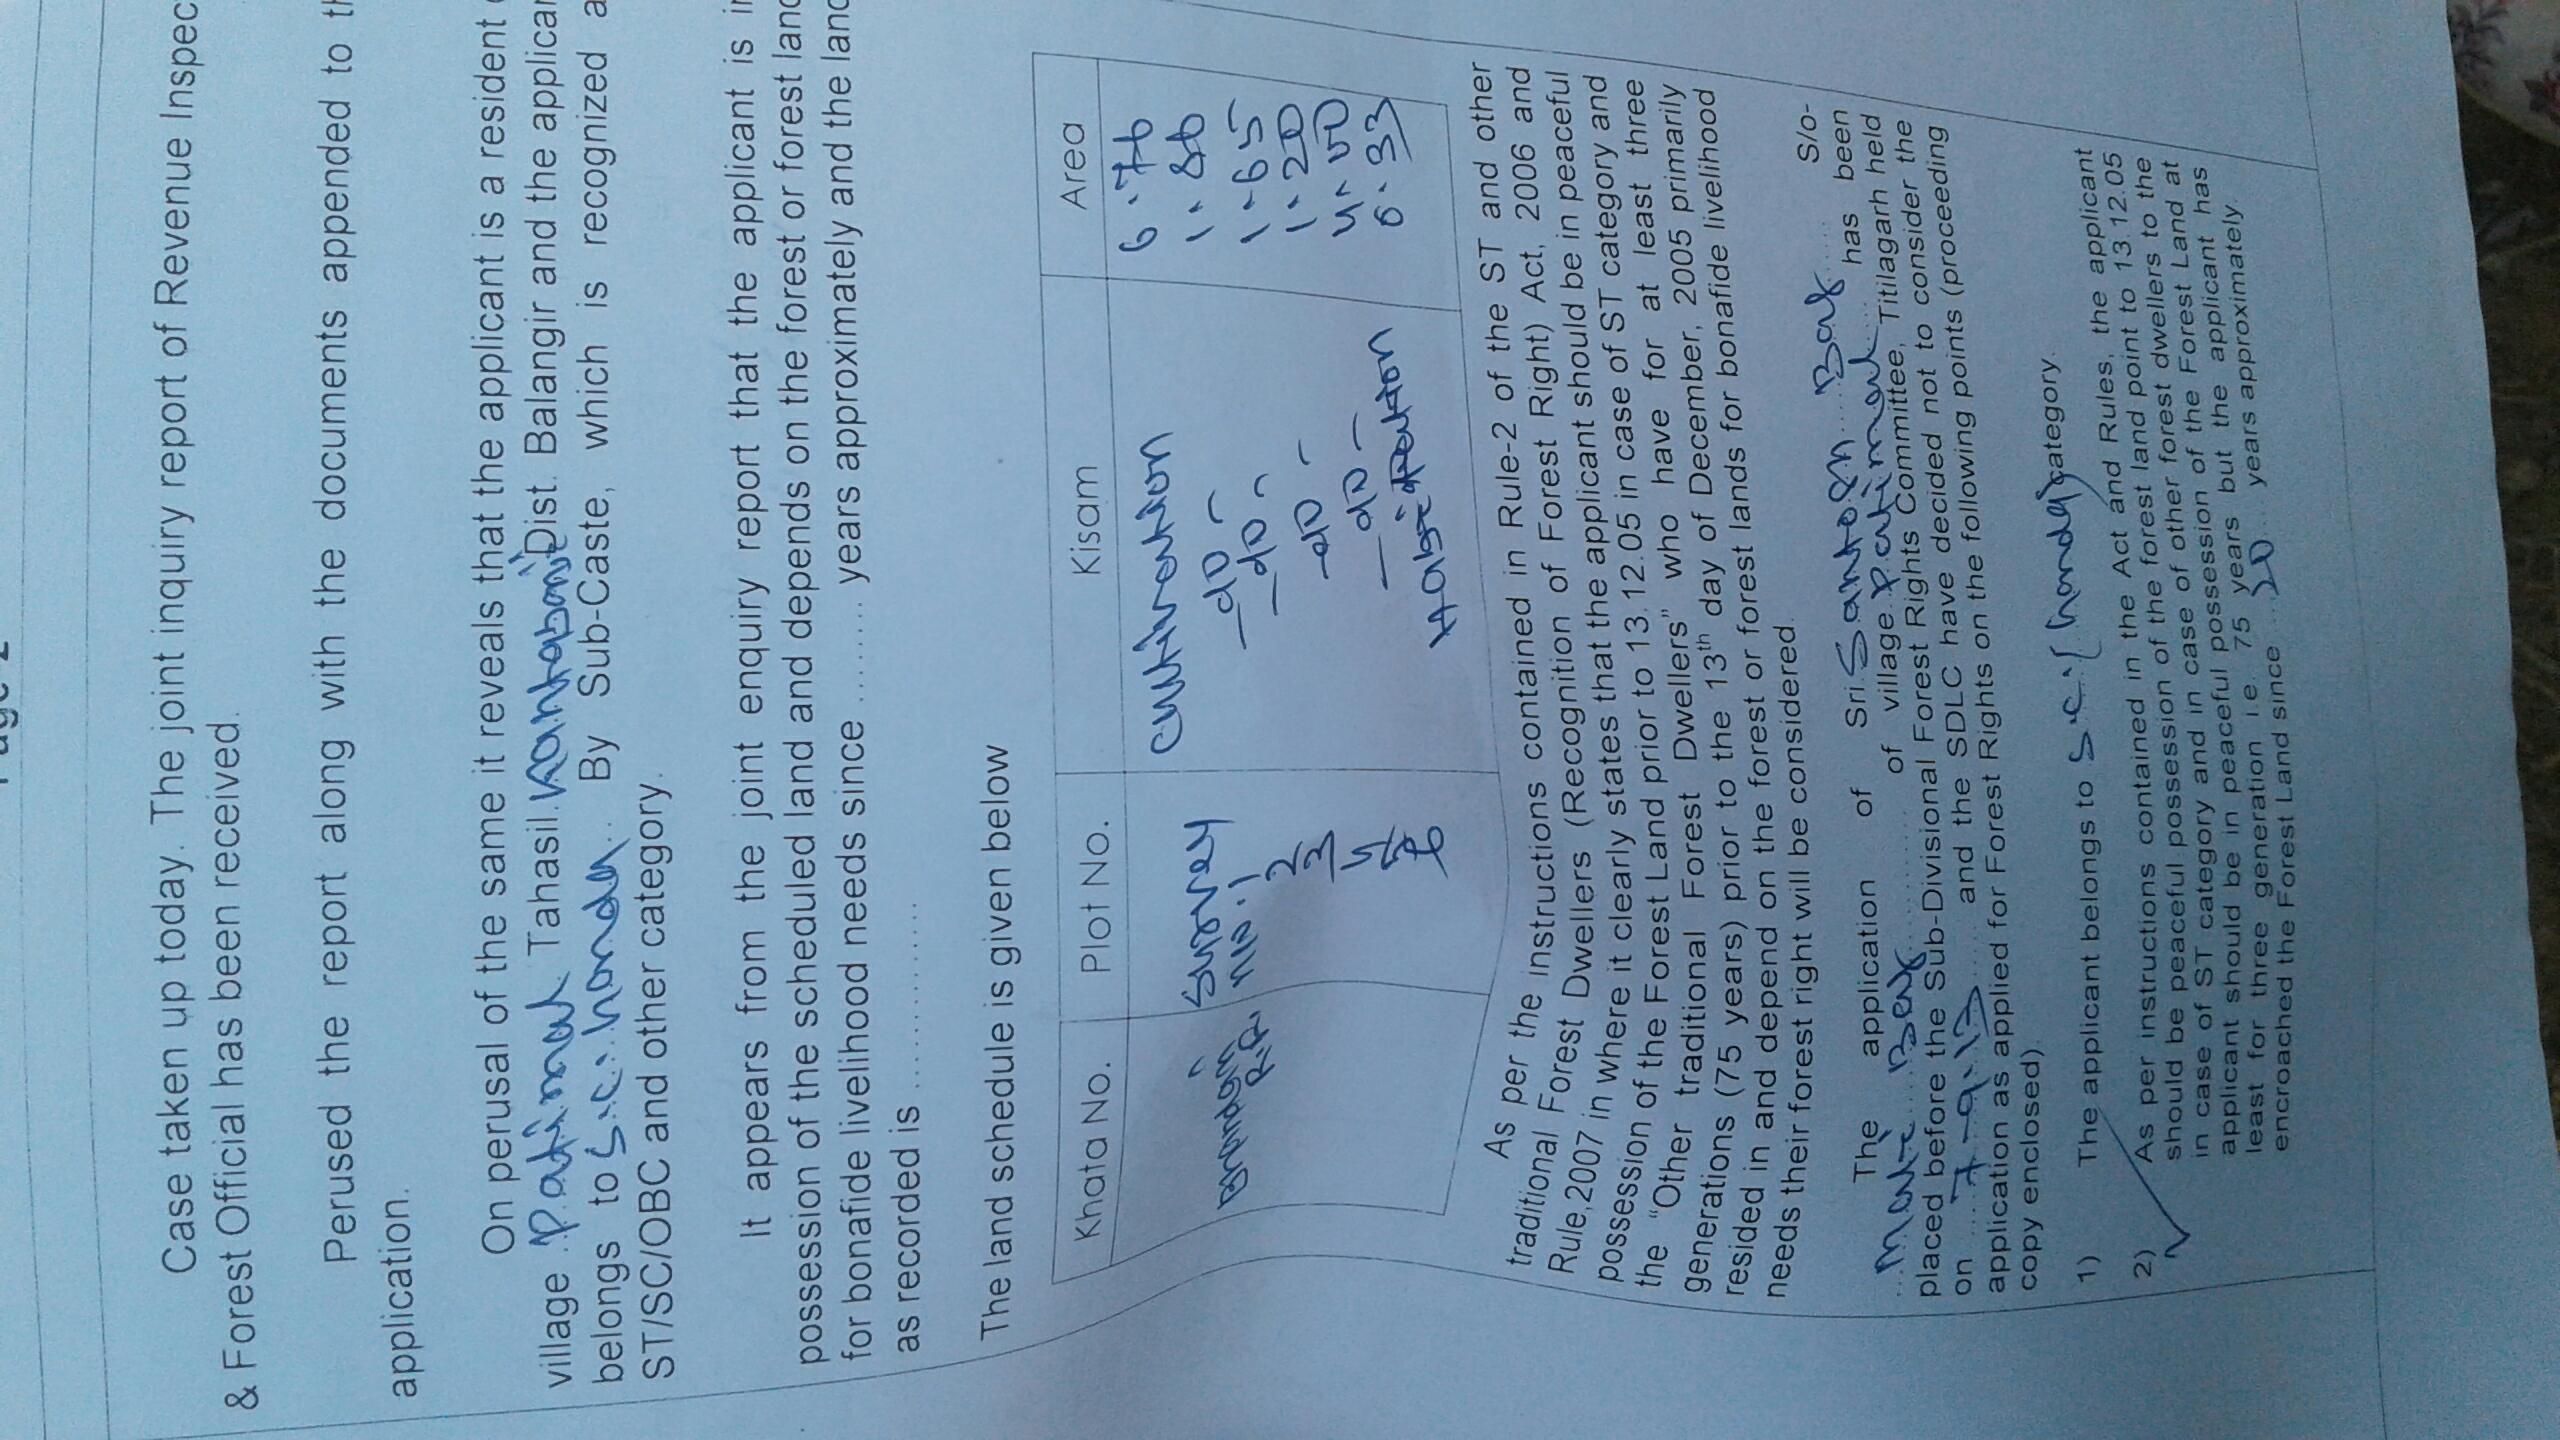 Case taken up today. The joint inquiry report of Revenue Inspec
& Forest Official has been received.
Perused the report along with the documents appended to th
application.
On perusal of the same it reveals that the applicant is a resident
village Patimal Tahasil Kantabanji Dist. Balangir and the applican
belongs to S.C. By Sub-Caste, which is recognized a
ST/SC/OBC and other category.
It appears from the joint enquiry report that the applicant is in
possession of the scheduled land and depends on the forest or forest land
for bonafide livelihood needs since ........ years approximately and the land
as recorded is ..............
The land schedule is given below
Khata No. Plot No. Kisam Area
Survey Cultivation
No. 1 -do- 1.86
2 -do- 1.65
3 -do- 1.20
4 -do-
5 Habitation 0.33
6
As per the instructions contained in Rule-2 of the ST and other
traditional Forest Dwellers (Recognition of Forest Right) Act, 2006 and
Rule,2007 in where it clearly states that the applicant should be in peaceful
possession of the Forest Land prior to 13.12.05 in case of ST category and
the "Other traditional Forest Dwellers" who have for at least three
generations (75 years) prior to the 13th day of December, 2005 primarily
resided in and depend on the forest or forest lands for bonafide livelihood
needs their forest right will be considered.
The application of Sri Santosh Bag S/o-
Bag of village Patimal has been
placed before the Sub-Divisional Forest Rights Committee, Titilagarh held
on 7-9-12 and the SDLC have decided not to consider the
application as applied for Forest Rights on the following points (proceeding
copy enclosed).
1) The applicant belongs to S.C. category.
2) As per instructions contained in the Act and Rules, the applicant
should be peaceful possession of the forest land point to 13.12.05
in case of ST category and in case of other forest dwellers to the
applicant should be in peaceful possession of the Forest Land at
least for three generation i.e. 75 years but the applicant has
encroached the Forest Land since 20 years approximately.